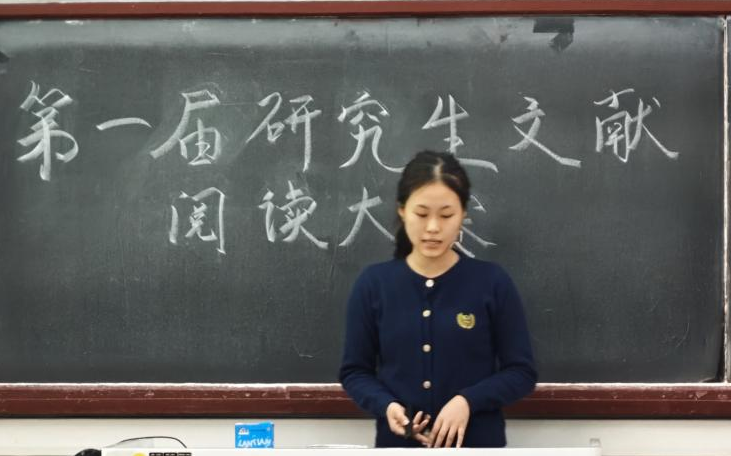 第一届研究生文献
阅读大赛
LANTIAN